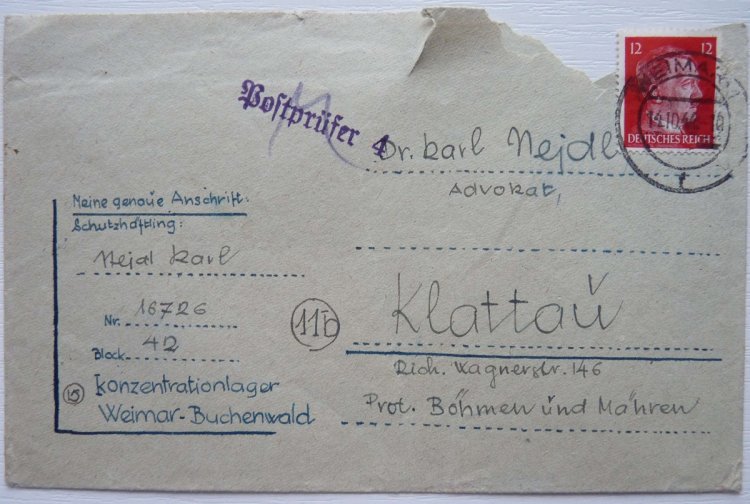 12 12
DEUTSCHES REICH
WEIMAR
14.10.44
Postprüfer 4
Dr. Karl Nejdl
Advokat,
Meine genaue Anschrift:
Schutzhäftling:
Nejdl Karl
Nr. 16726
Block. 42
(15) Konzentrationlager
Weimar-Buchenwald
11b
Klattau
Rich. Wagnerstr. 146
Prot. Böhmen und Mähren